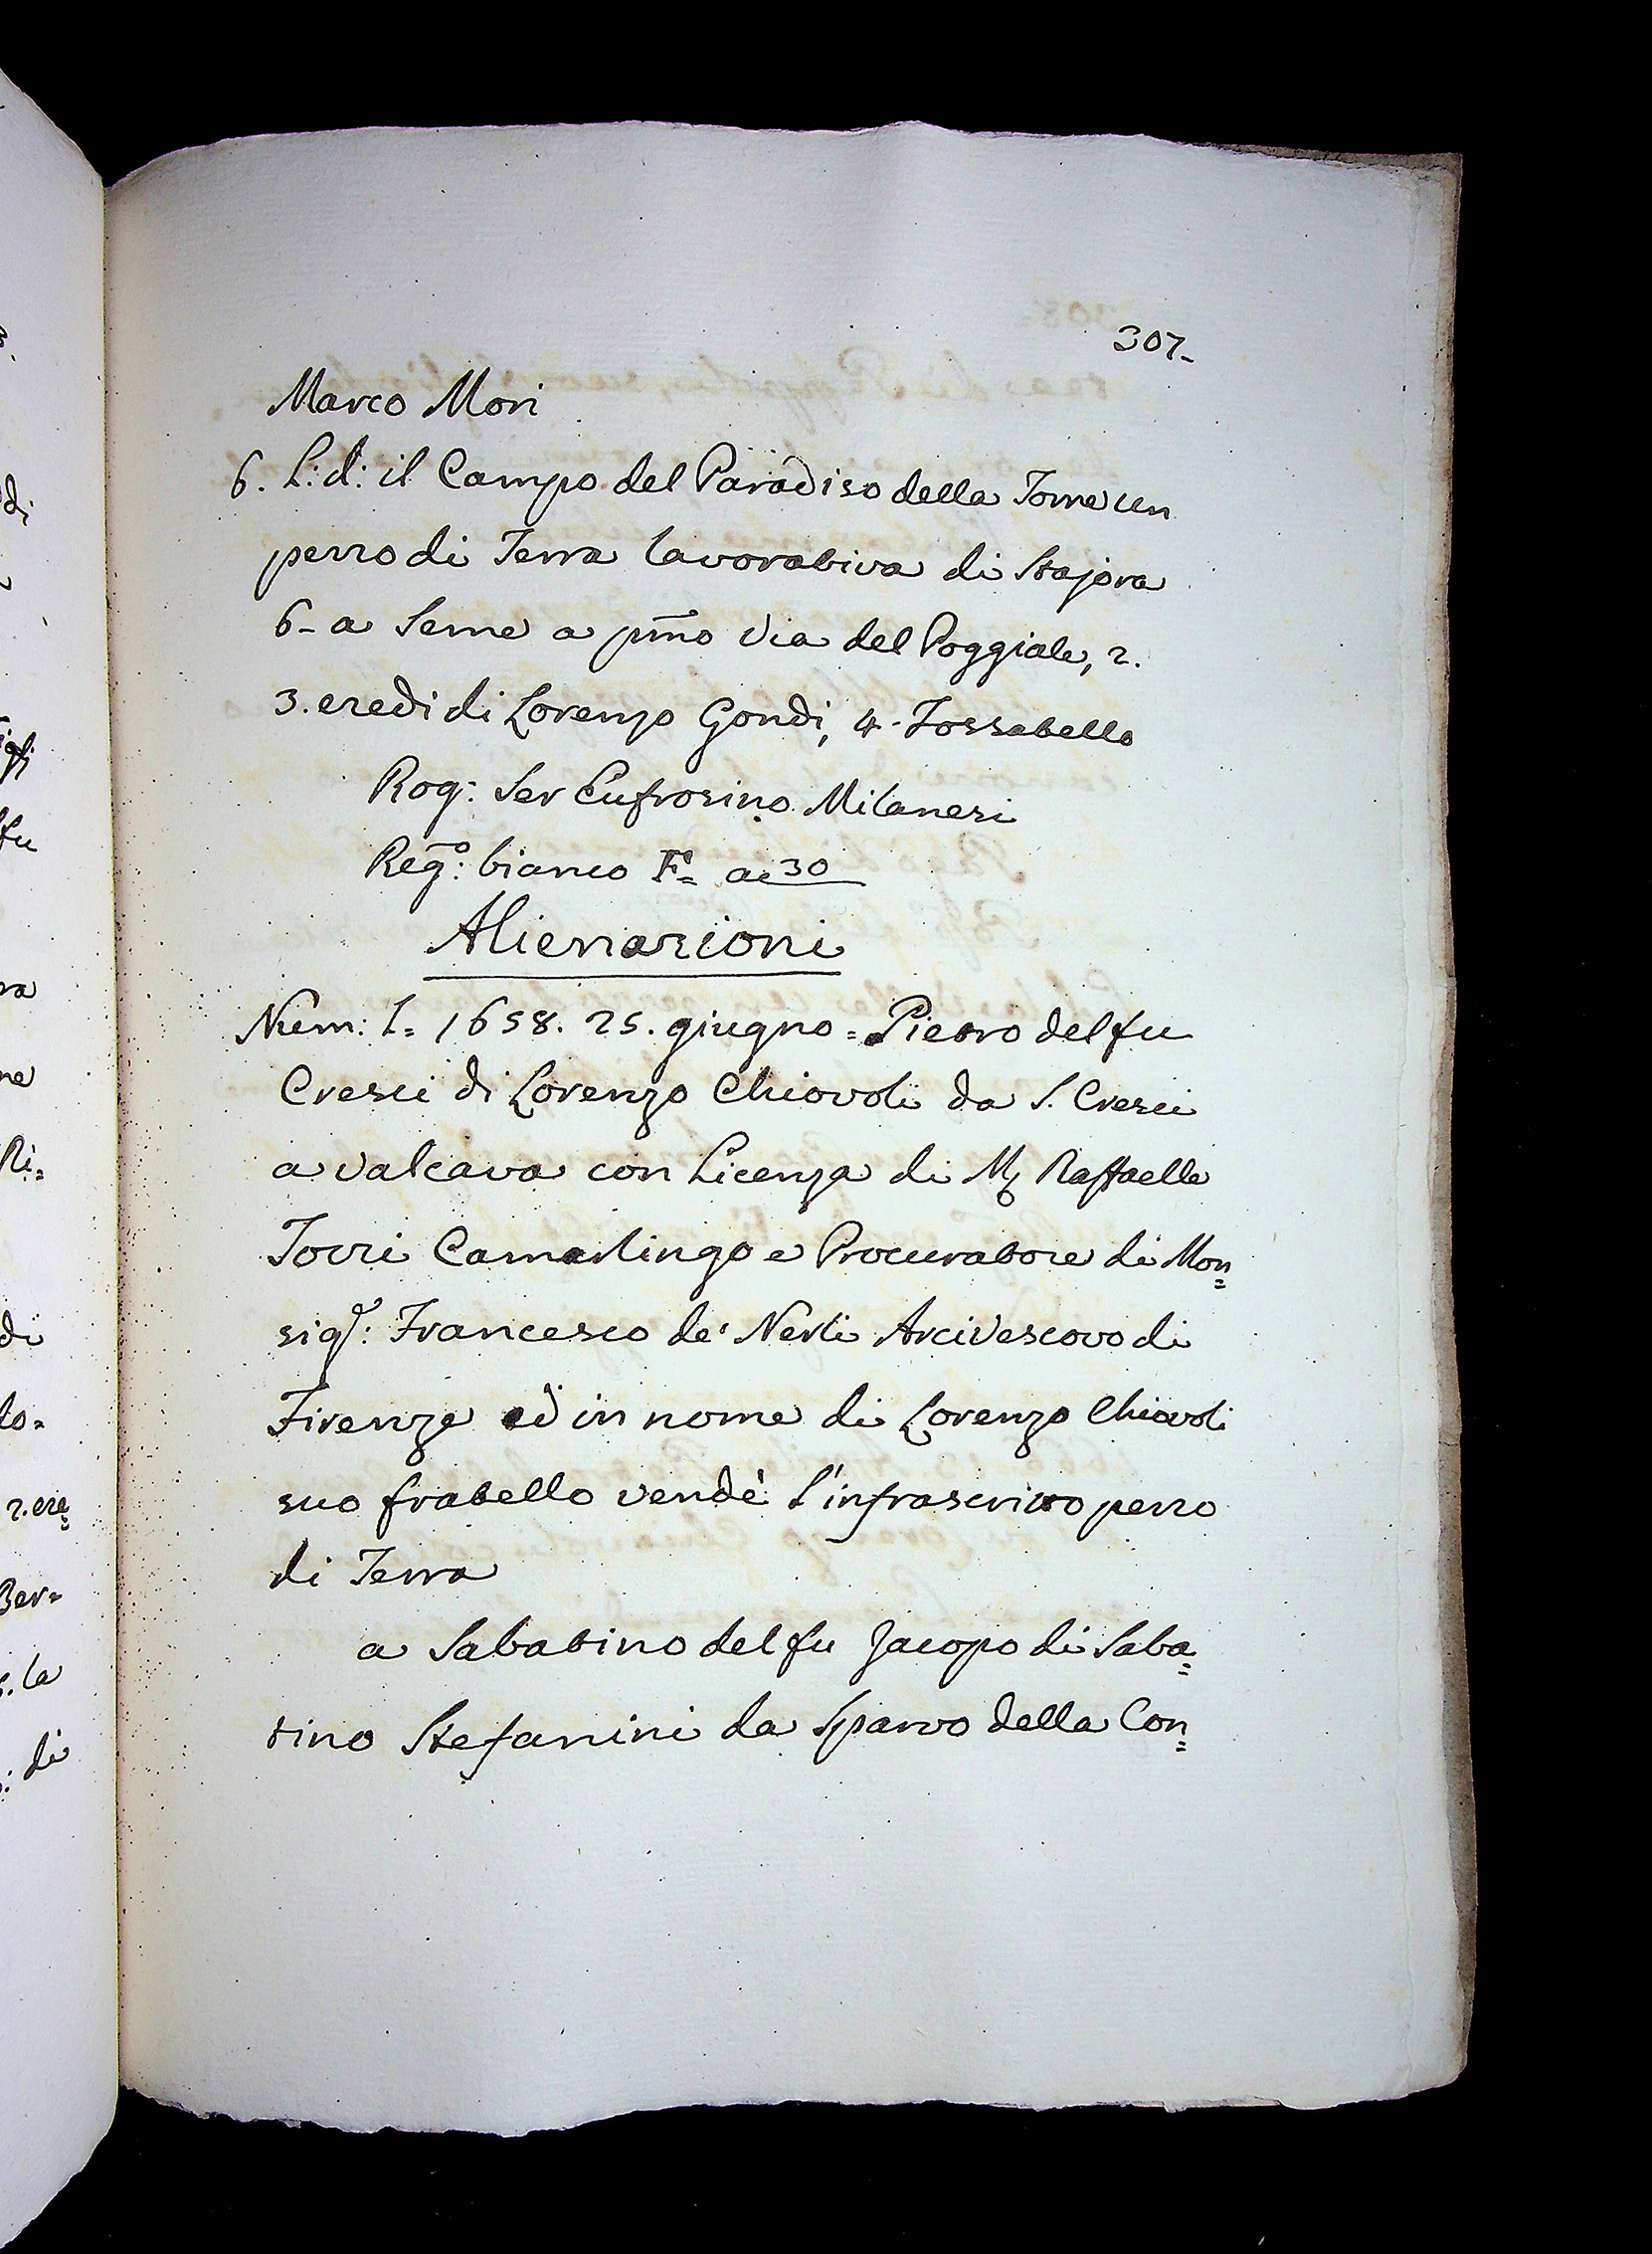 307-
Marco Mori
6. L: d: il Campo del Paradiso della Torre un
pezzo di Terra lavorativa di Stajora
6- a Seme a pmo Via del Poggiale, 2.
3. eredi di Lorenzo Gondi, 4. Fossatello
Rog: Ser Eufrosino Milanesi
Rego: bianco F= a 30
Alienazioni
Num: 1= 1658. 25. giugno = Pietro del fu
Cresci di Lorenzo Chiavoli da S. Cresci
a Valcava con Licenza di Mr Raffaelle
Torri Camarlingo e Procuratore di Mon=
sigr: Francesco de' Nerli Arcivescovo di
Firenze ed in nome di Lorenzo Chiavoli
suo fratello vendè l'infrascritto pezzo
di Terra
a Sabatino del fu Jacopo di Saba=
tino Stefanini da Spazzo della Con=
di
fu
ra
ne
Ri=
di
lo=
2. ere=
Ber=
la
di